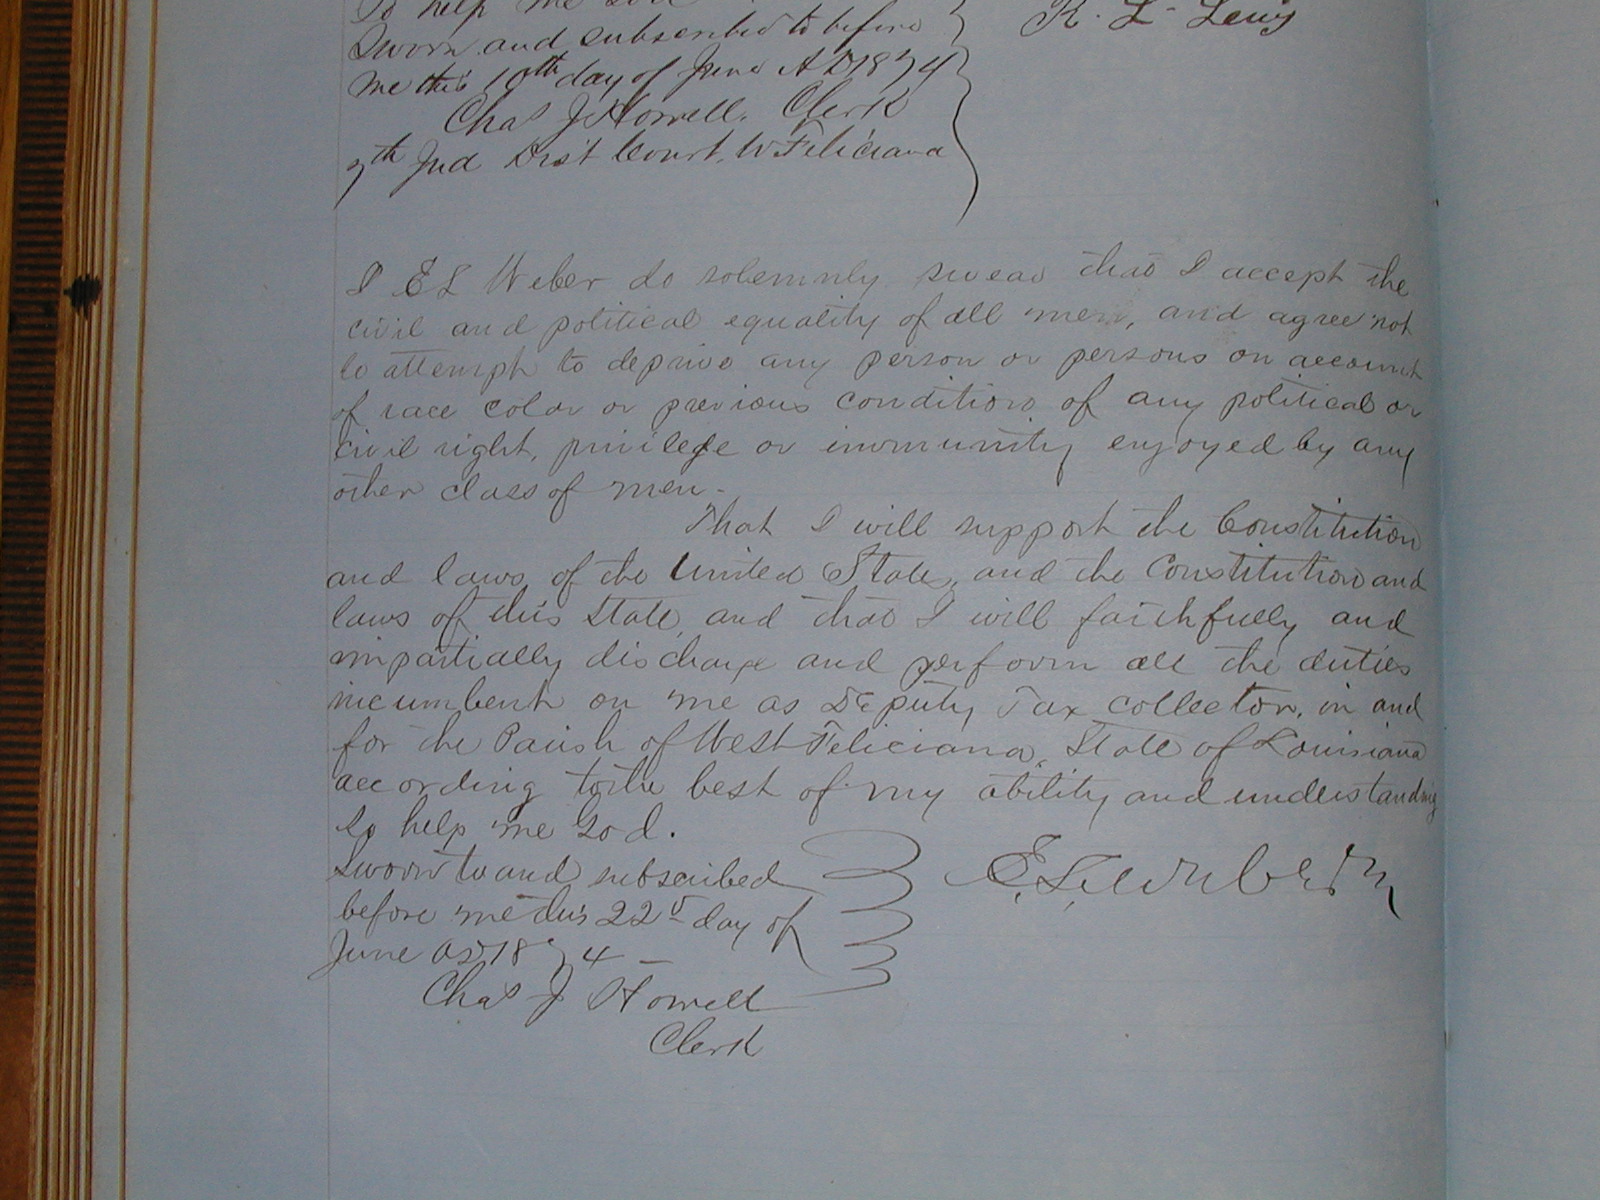 So help me God
R. L. Lewis
Sworn and subscribed to before
me this 10th day of June AD 1874
Chas J Howell. Clerk
7th Jud Dist Court, W Feliciana
I E L Weber do solemnly swear that I accept the
civil and political equality of all men, and agree not
to attempt to deprive any person or persons on account
of race color or previous condition, of any political or
civil right, privilege or immunity enjoyed by any
other class of men.
That I will support the Constitution
and laws, of the United State, and the Constitution and
laws of this State, and that I will faithfully and
impartially discharge and perform all the duties
incumbent on me as Deputy Tax collector, in and
for the Parish of West Feliciana, State of Louisiana
according to the best of my ability and understanding
So help me God.
Sworn to and subscribed
E. L. Weber
before me this 22d day of
June AD 1874 —
Chas J Howell
Clerk